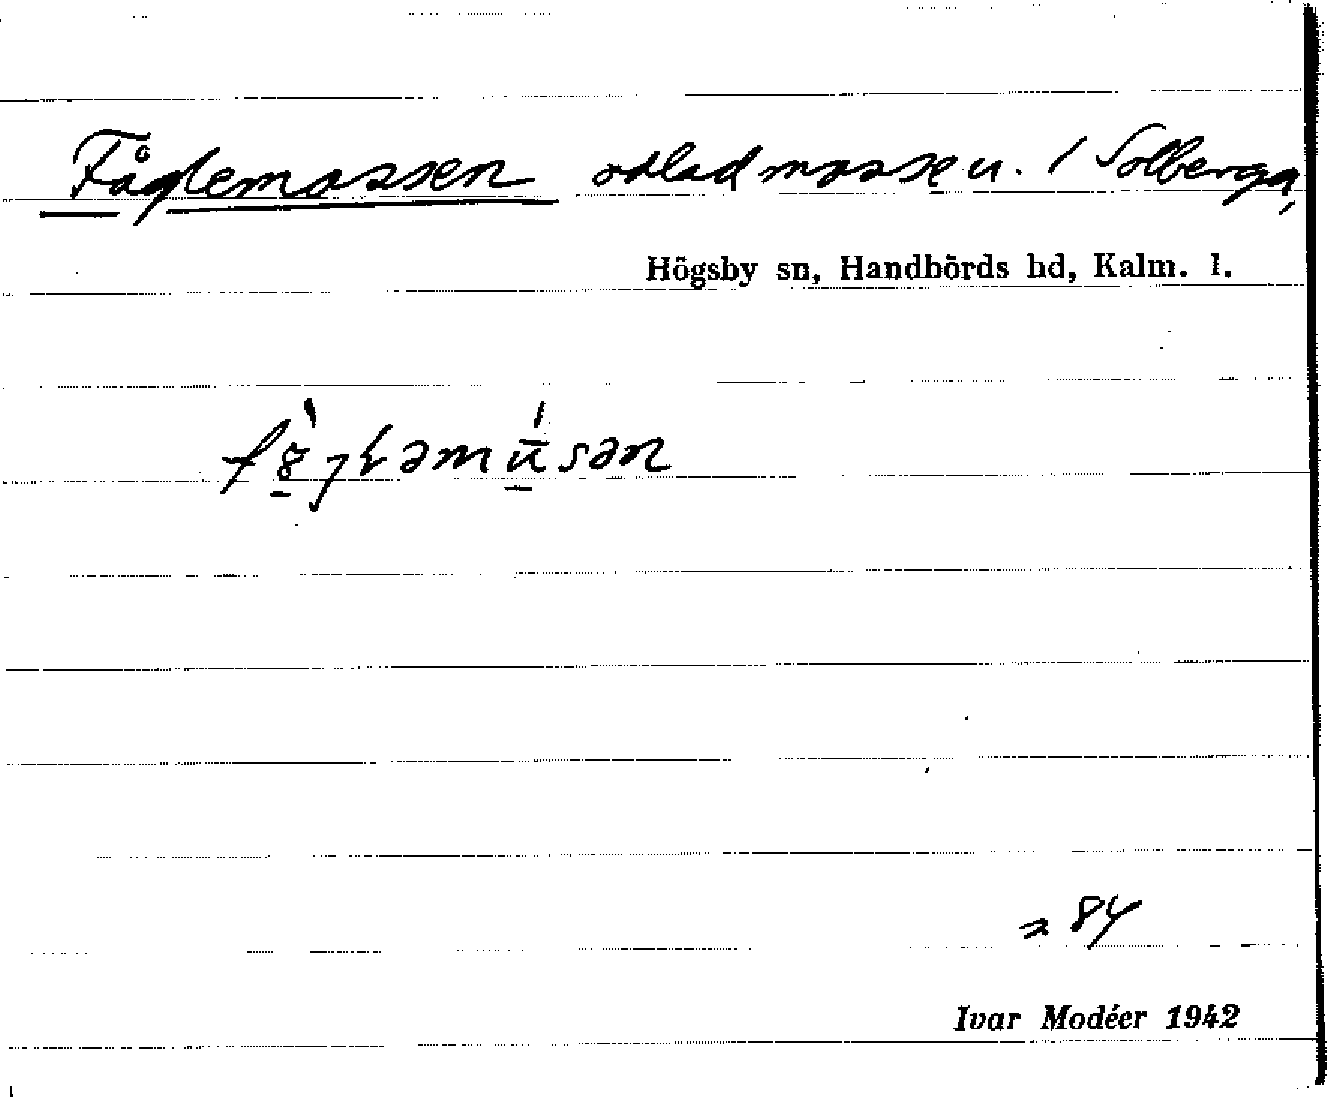 Fåglemossen odlad mosse u. / Solberga,
Högsby sn, Handbörds hd, Kalm. l.
= 84
Ivar Modéer 1942